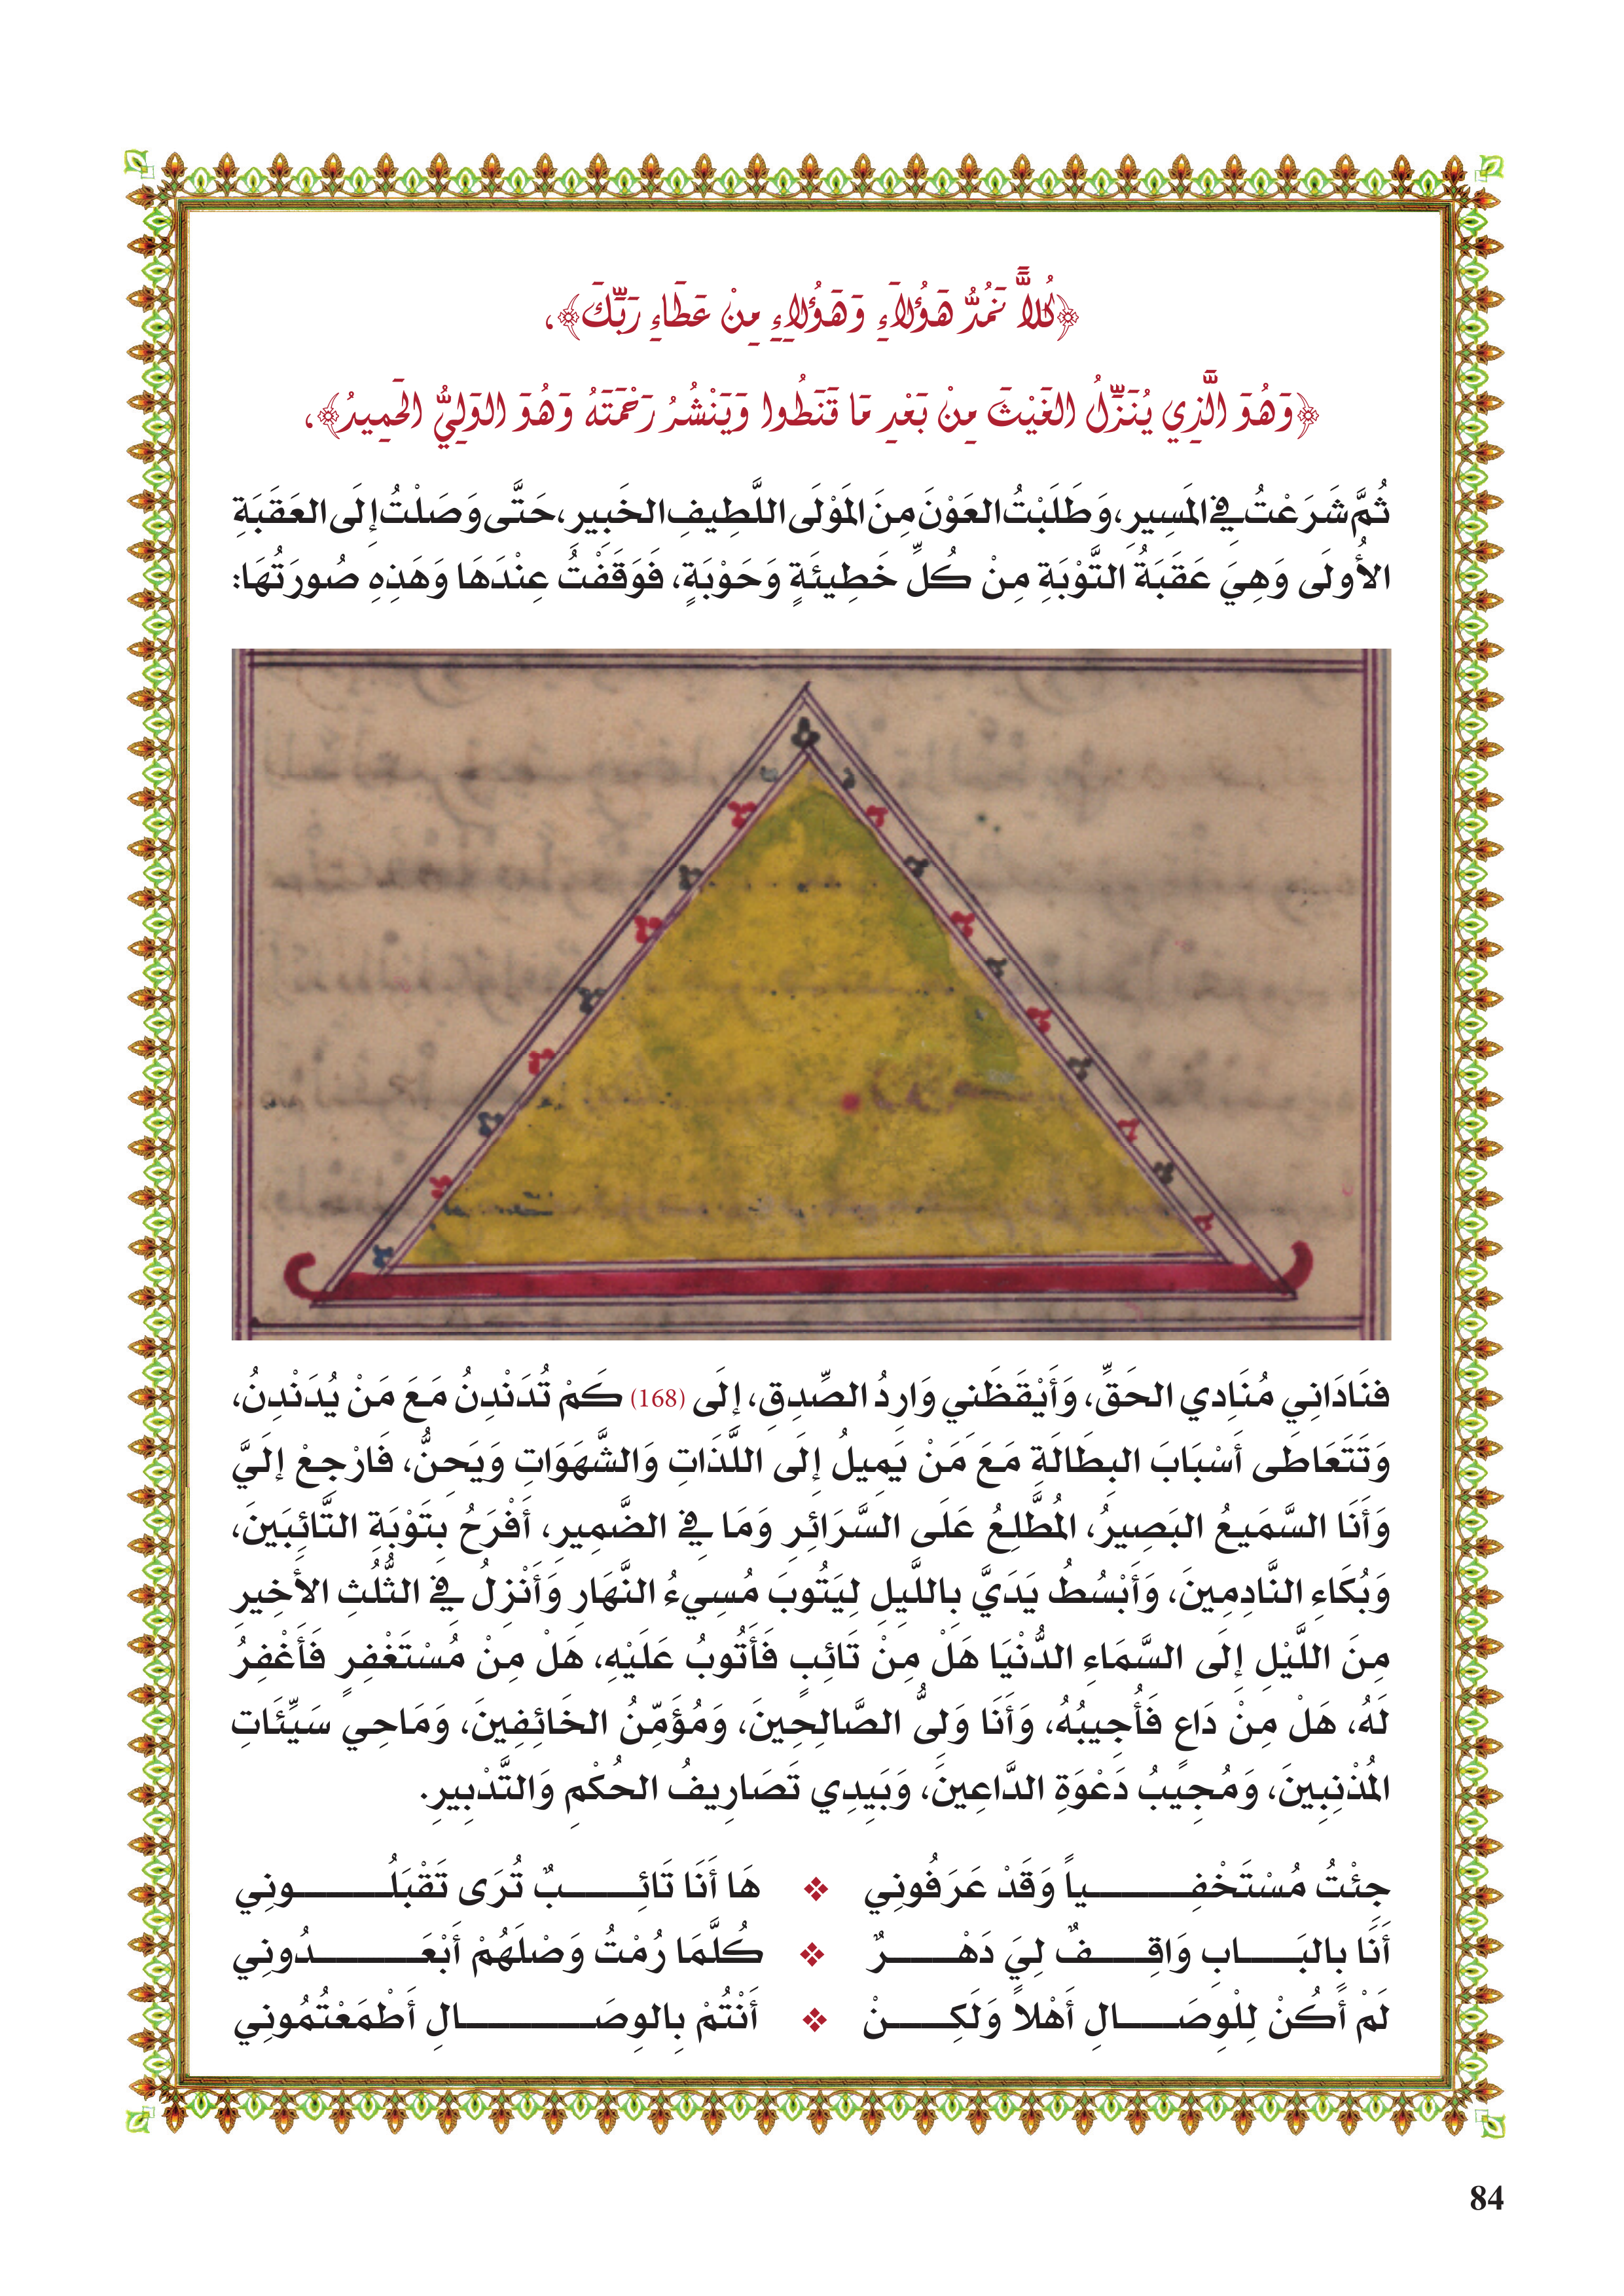 ﴿كُلاًّ نَمُدُّ هَؤُلاَءِ وَهَؤُلاِءِ مِنْ عَطَاءِ رَبِّكَ﴾،
﴿وَهُوَ الَّذِي يُنَزِّلُ الغَيْثَ مِنْ بَعْدِ مَا قَنَطُوا وَيَنْشُرُ رَحْمَتَهُ وَهُوَ الوَلِيُّ الحَمِيدُ﴾،
ثُمَّ شَرَعْتُ فِي المَسِيرِ، وَطَلَبْتُ العَوْنَ مِنَ المَوْلَى اللَّطِيفِ الخَبِيرِ، حَتَّى وَصَلْتُ إِلَى العَقَبَةِ
الأُولَى وَهِيَ عَقَبَةُ التَّوْبَةِ مِنْ كُلِّ خَطِيئَةٍ وَحَوْبَةٍ، فَوَقَفْتُ عِنْدَهَا وَهَذِهِ صُورَتُهَا:
فنَادَانِي مُنَادِي الحَقِّ، وَأَيْقَظَنِي وَارِدُ الصِّدِقِ، إِلَى (168) كَمْ تُدَنْدِنُ مَعَ مَنْ يُدَنْدِنُ،
وَتَتَعَاطَى أَسْبَابَ البِطَالَةِ مَعَ مَنْ يَمِيلُ إِلَى اللَّذَاتِ وَالشَّهَوَاتِ وَيَحِنُّ، فَارْجِعْ إِلَيَّ
وَأَنَا السَّمَيعُ البَصِيرُ، المُطَّلِعُ عَلَى السَّرَائِرِ وَمَا فِي الضَّمِيرِ، أَفْرَحُ بِتَوْبَةِ التَّائِبَينَ،
وَبُكَاءِ النَّادِمِينَ، وَأَبْسُطُ يَدَيَّ بِاللَّيِلِ لِيَتُوبَ مُسِيءُ النَّهَارِ وَأَنْزِلُ فِي الثُّلُثِ الأَخِيرِ
مِنَ اللَّيْلِ إِلَى السَّمَاءِ الدُّنْيَا هَلْ مِنْ تَائِبٍ فَأَتُوبُ عَلَيْهِ، هَلْ مِنْ مُسْتَغْفِرٍ فَأَغْفِرُ
لَهُ، هَلْ مِنْ دَاعٍ فَأُجِيبُهُ، وَأَنَا وَلِىُّ الصَّالِحِينَ، وَمُؤَمِّنُ الخَائِفِينَ، وَمَاحِي سَيِّئَاتِ
المُذْنِبِينَ، وَمُجِيبُ دَعْوَةِ الدَّاعِينَ، وَبَيدِي تَصَارِيفُ الحُكْمِ وَالتَّدْبِيرِ.
جِئْتُ مُسْتَخْفِـيـاً وَقَدْ عَرَفُونِي ❖ هَا أَنَا تَائِـبٌ تُرَى تَقْبَلُـونِي
أَنَا بِالبَـابِ وَاقِـفٌ لِيَ دَهْـرٌ ❖ كُلَّمَا رُمْتُ وَصْلَهُمْ أَبْعَـدُونِي
لَمْ أَكُنْ لِلْوِصَـالِ أَهْلاً وَلَكِـنْ ❖ أَنْتُمْ بِالوِصَـالِ أَطْمَعْتُمُونِي
84